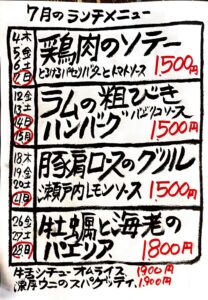 7月のランチメニュー
4木
5金
6土
7日
鶏肉のソテー
とろけるパセリバターとトマトソース
1500円
12金
13土
14日
15月
ラムの粗びき
ハンバーグ バジリコソース
1500円
18木
19金
20土
21日
豚肩ロースのグリル
瀬戸内レモンソース 1500円
26金
27土
28日
牡蠣と海老の
パエリア 1800円
牛舌シチューオムライス 1900円
濃厚ウニのスパゲッティ 1,900円